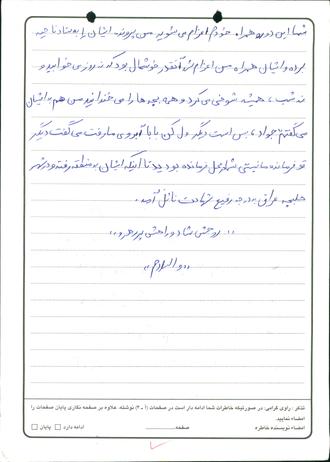 شما این دوره همراه خودم اعزام می شوید من پرونده ایشان را به ستاد ناحیه
برده و ایشان همراه من اعزام شد آنقدر خوشحال بود که نه روز می خوابید و
نه شب ، همیشه شوخی می کرد و همه بچه ها را می خندانید من هم به ایشان
می گفتم جواد ، بس است دیگر ول کن بابا آبروی ما رفت می گفت دیگر
تو فرمانده ما نیستی شما فرمانده بودید تا اینکه ایشان به منطقه رفته و در شهر
حلبچه عراق به درجه رفیع شهادت نائل آمد .
،، روحش شاد و راهش پر رهرو ،،
،، والسلام ،،
تذکر : راوی گرامی: در صورتیکه خاطرات شما ادامه دار است در صفحات (۱ ـ ۳) نوشته، علاوه بر صفحه نگاری پایان صفحات را
امضاء نمایید.
امضاء نویسنده خاطره صفحه ادامه دارد □ پایان □